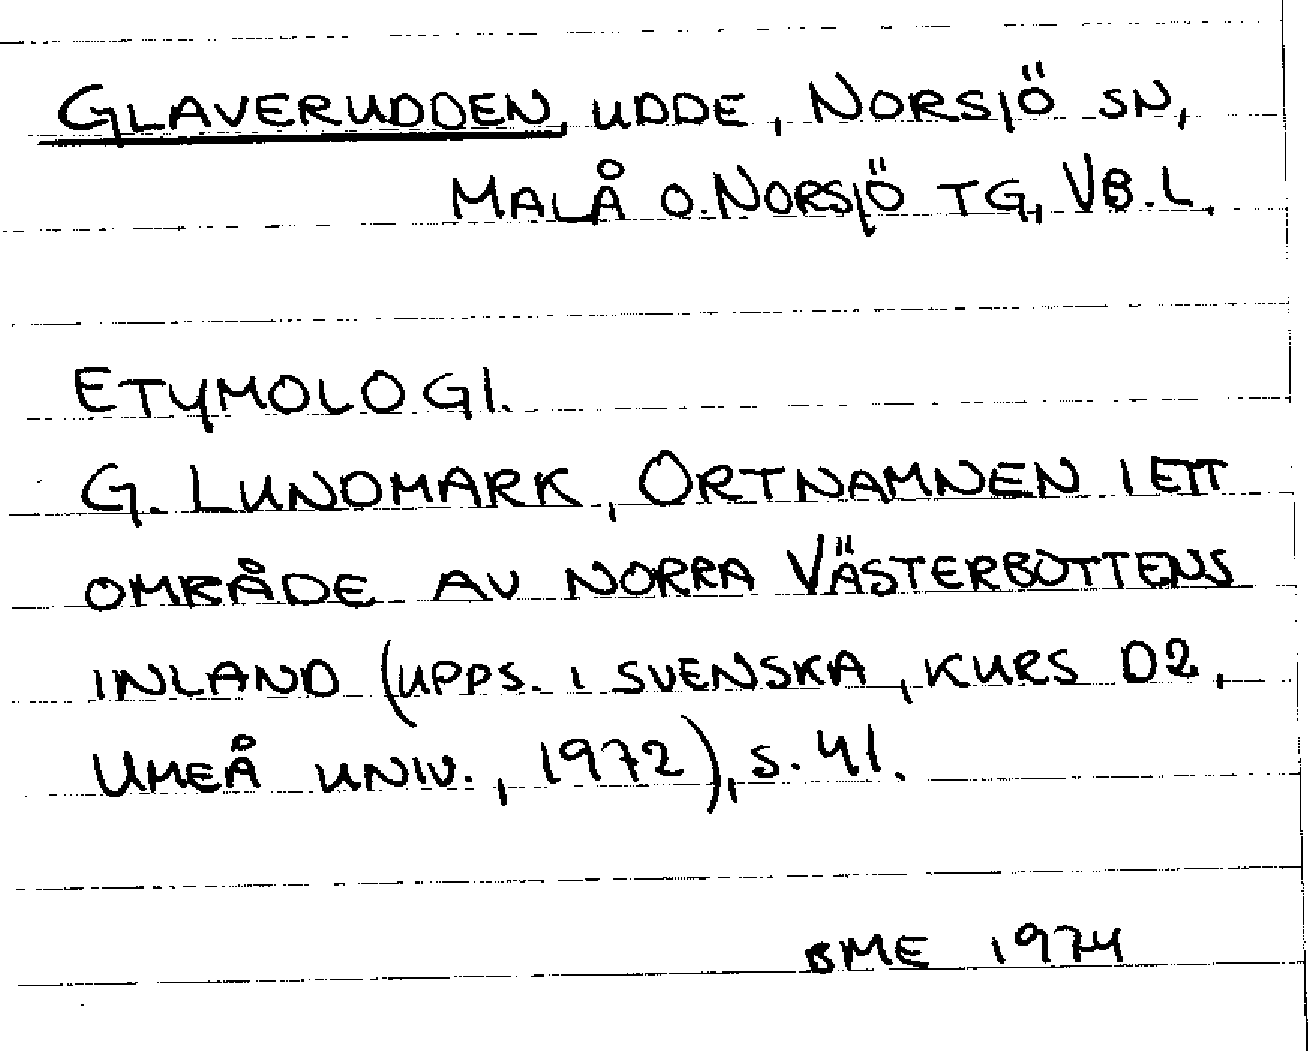 GLAVERUDDEN, UDDE, NORSJÖ SN,
MALÅ O. NORSJÖ TG, VB.L.
ETYMOLOGI.
G. LUNDMARK, ORTNAMNEN I ETT
OMRÅDE AV NORRA VÄSTERBOTTENS
INLAND (UPPS. I SVENSKA, KURS D2,
UMEÅ UNIV., 1972), S. 41.
BME 1974